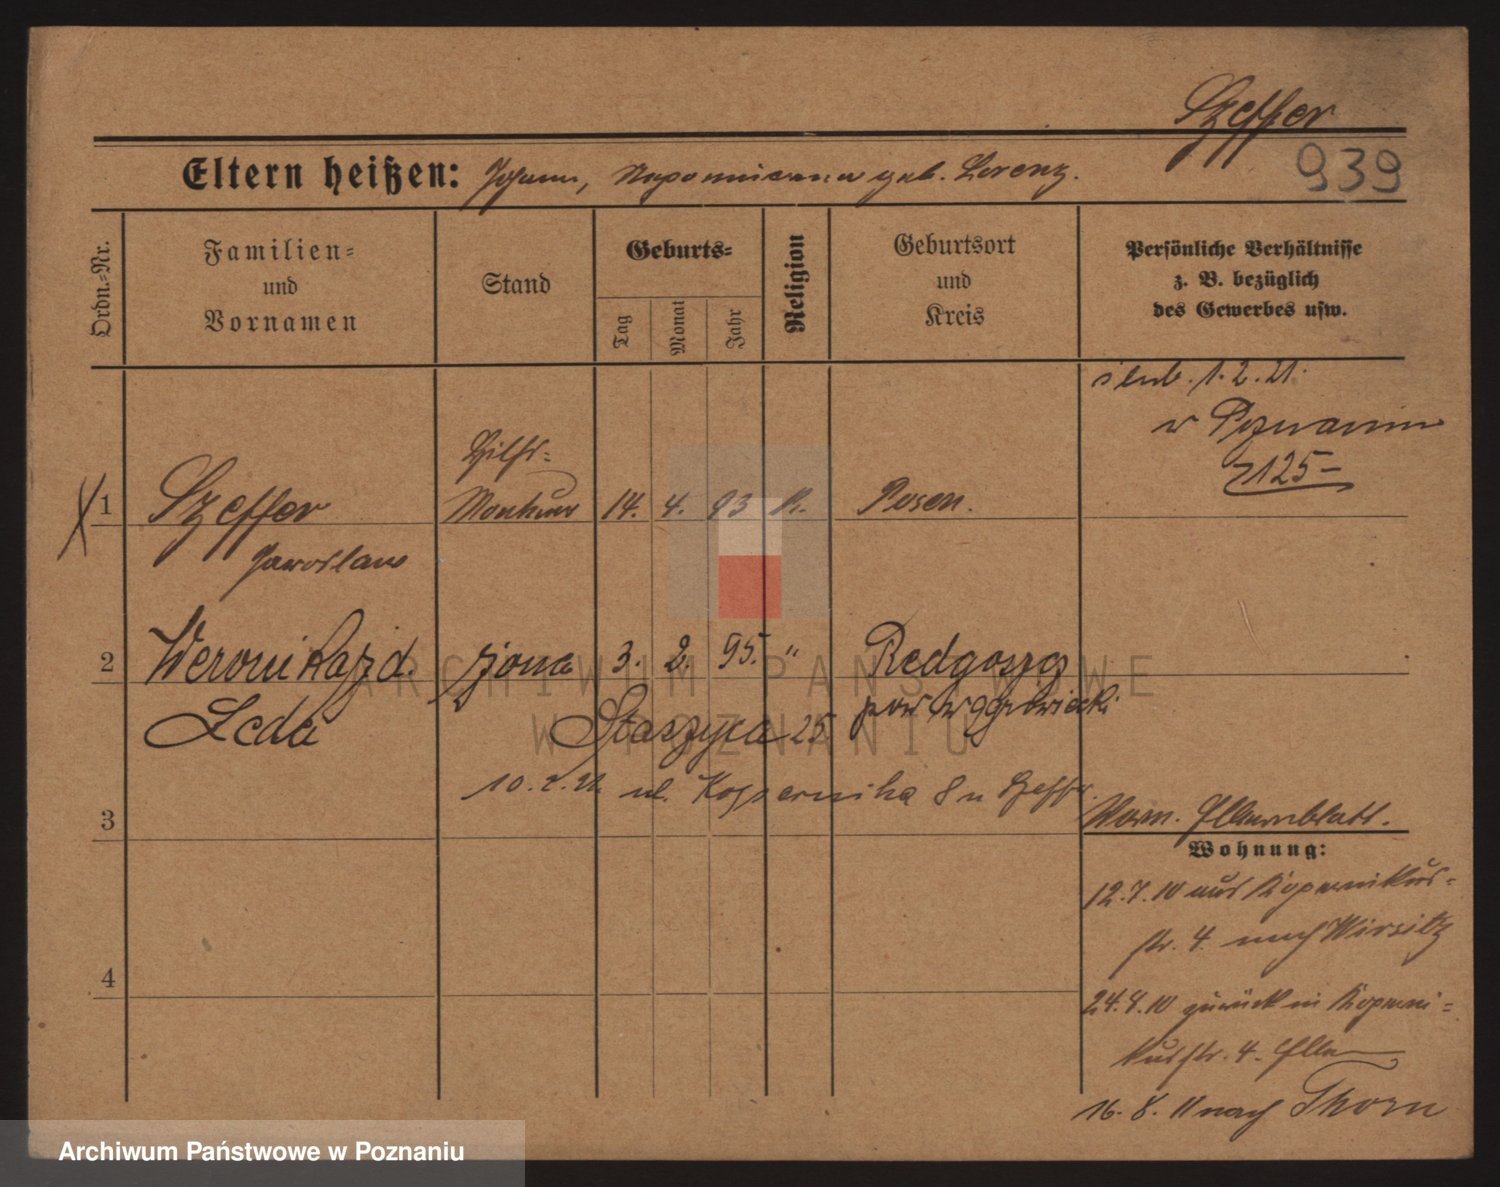 Szeffer
939
Eltern heißen: Johann, Nepomucena geb. Lorenz.
Ordn.=Nr.
Familien=
und
Vornamen
Stand
Geburts=
Tag
Monat
Jahr
Religion
Geburtsort
und
Kreis
Persönliche Verhältnisse
z. B. bezüglich
des Gewerbes usw.
ślub. 1.2.21.
w Poznaniu
125
1 Szeffer Hilfs= Monteur 14. 4. 93 K. Posen.
Jaroslaus
2 Weronika z d. żona 3. 2. 95. " Redgoszcz
Leda
pow wągrowiecki
Staszyca 25
10.2.21 ul. Kopernika 8 u Szeffr.
3
Vorm. Elternblatt.
Wohnung:
12.7.10 aus Kopernikus=
str. 4. nach Wirsitz
4
24.8.10 zurück in Koperni=
kusstr. 4. Eltern
16.8.11 nach Thorn
ARCHIWUM PAŃSTWOWE
W POZNANIU
Archiwum Państwowe w Poznaniu